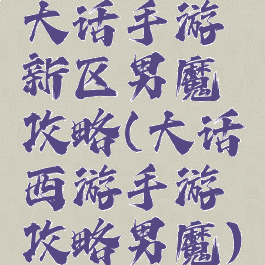 大话手游
新区男魔
攻略(大话
西游手游
攻略男魔)